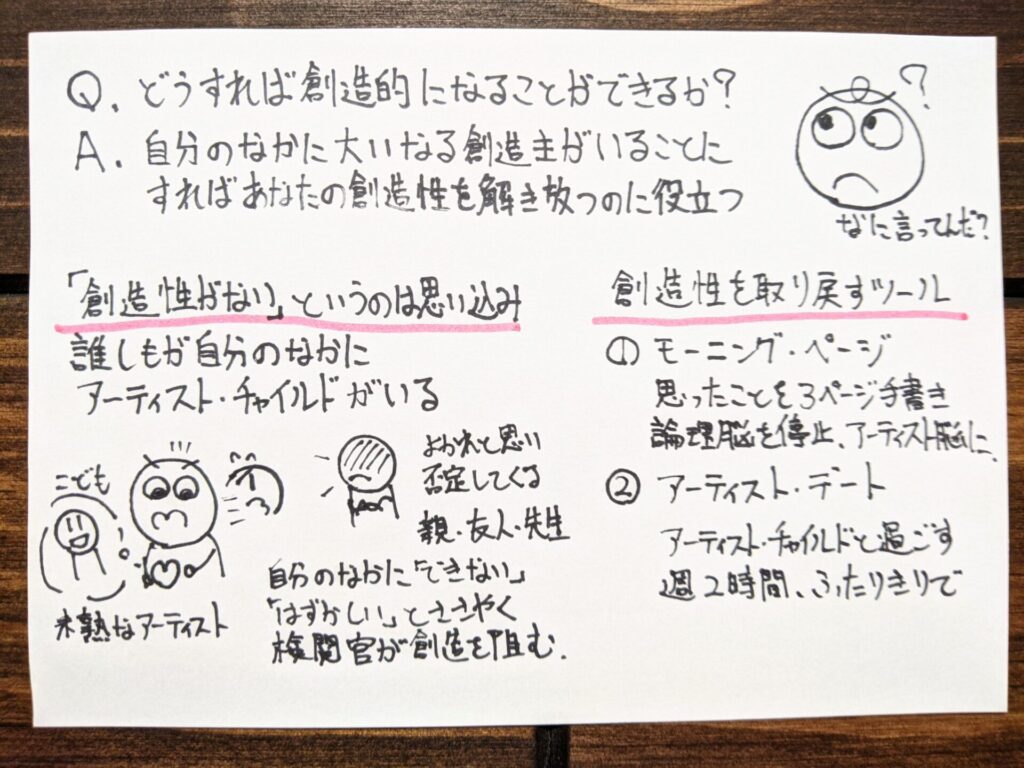 Q. どうすれば創造的になることができるか?
A. 自分のなかに大いなる創造主がいることに
すればあなたの創造性を解き放つのに役立つ
?
なに言ってんだ?
「創造性がない」というのは思い込み
誰しもが自分のなかに
アーティスト・チャイルドがいる
こども
未熟なアーティスト
よかれと思い
否定してくる
親・友人・先生
自分のなかに「できない」
「はずかしい」とささやく
検閲官が創造を阻む.
創造性を取り戻すツール
① モーニング・ページ
思ったことを3ページ手書き
論理脳を停止、アーティスト脳に、
② アーティスト・デート
アーティスト・チャイルドと過ごす
週2時間、ふたりきりで